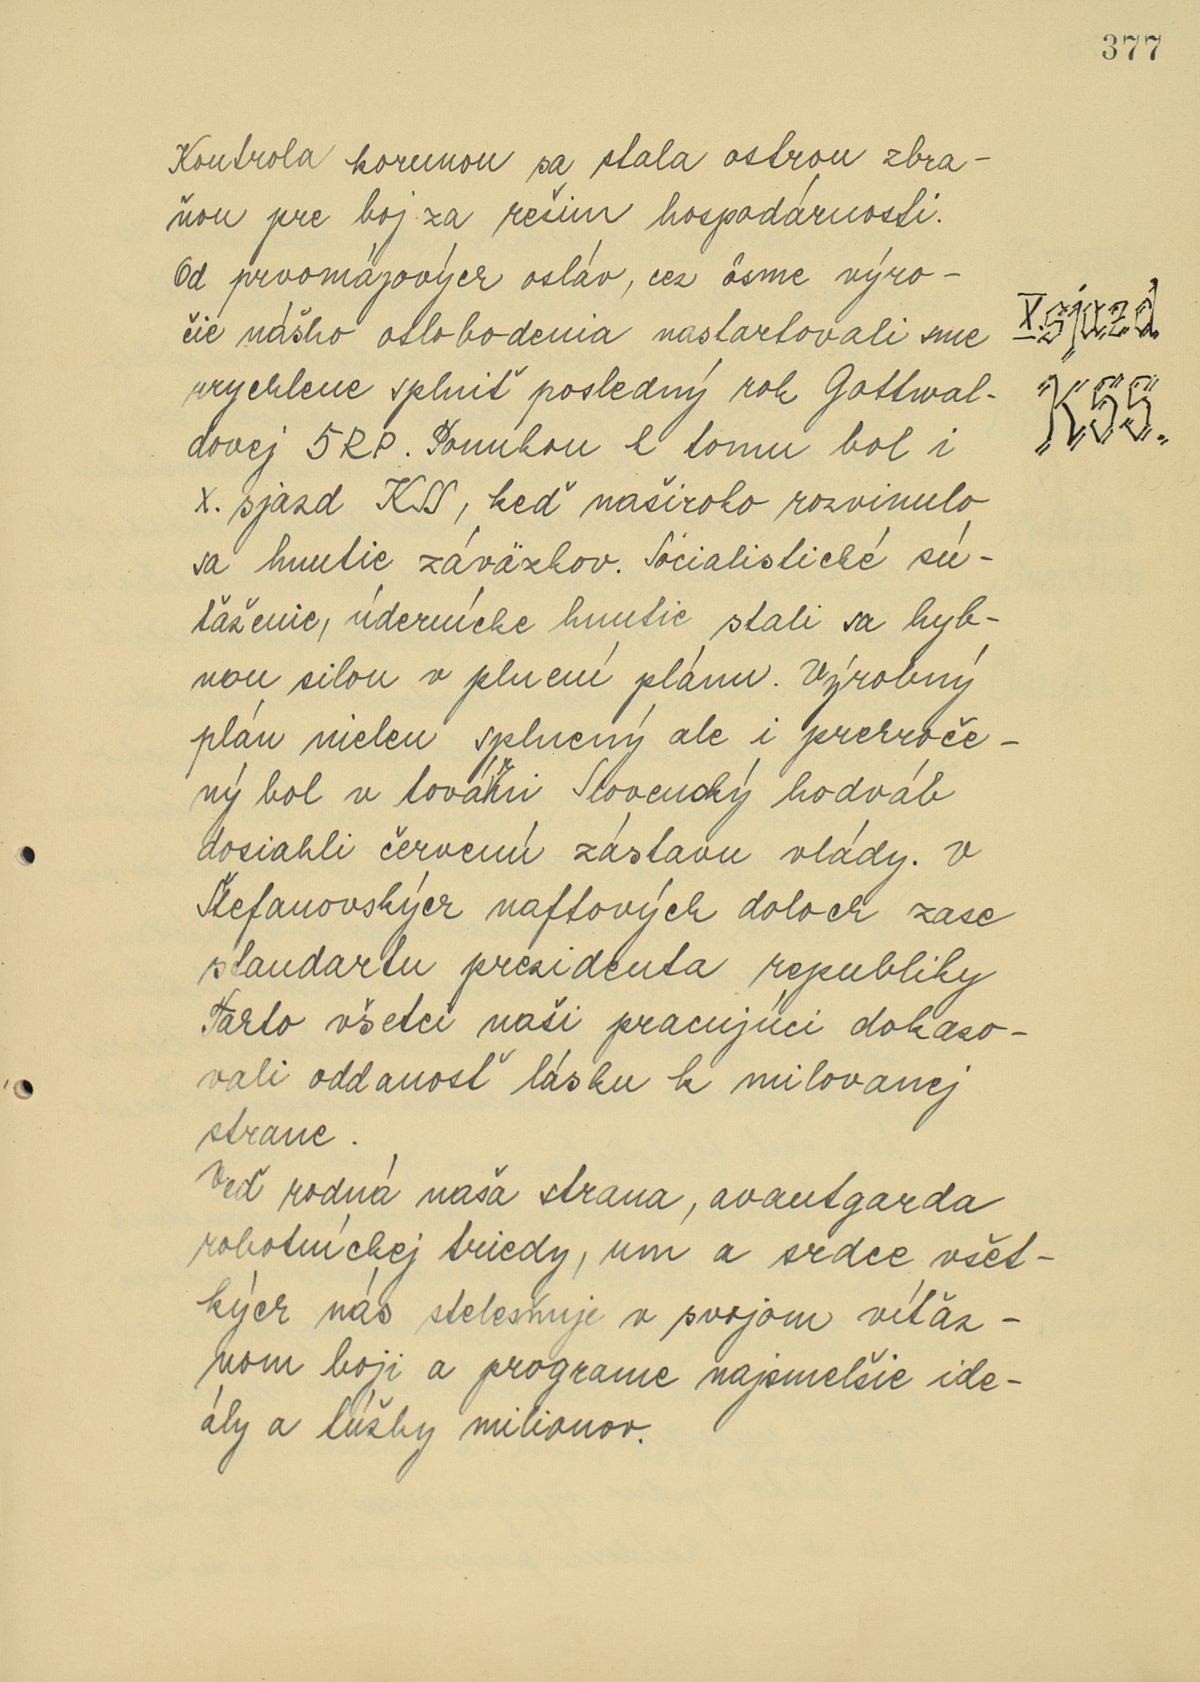 377
Kontrola korunou sa stala ostrou zbra-
ňou pre boj za rešim hospodárnosti.
Od prvomájových osláv, cez ôsme výro-
čie nášho oslobodenia nastartovali sme
urychlene splniť posledný rok Gottwal-
dovej 5RP. Ponukou k tomu bol i
X. sjazd KSS, keď naširoko rozvinulo
sa hnutie záväzkov. Socialistické sú-
ťaženie, údernícke hnutie stali sa hyb-
nou silou v plnení plánu. Výrobný
plán nielen splnený ale i prekroče-
ný bol v továrni Slovenský hodváb
dosiahli červenú zástavu vlády. V
Štefanovských naftových doloch zase
standartu presidenta republiky
Takto všetci naši pracujúci dokaso-
vali oddanosť lásku k milovanej
strane.
Veď rodná naša strana, avantgarda
robotníckej triedy, um a srdce všet-
kých nás stelesňuje v svojom víťaz-
nom boji a programe najsmelšie ide-
ály a túžby milionov.
X. sjazd
KSS.